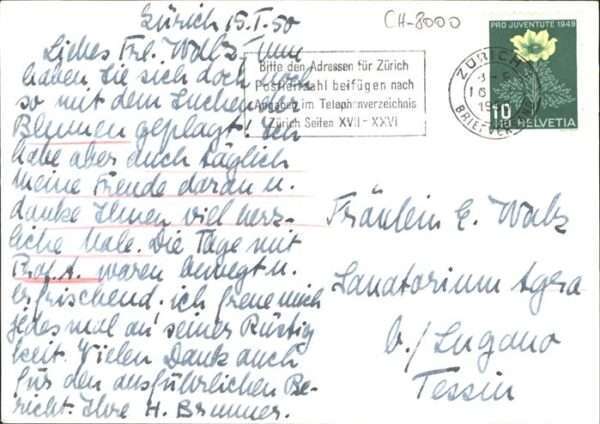 Zürich 15.I.50
Liebes Frl. Walz - nun
haben Sie sich doch noch
so mit dem Suchen der
Blumen geplagt! Ich
habe aber auch täglich
meine Freude daran u.
danke Ihnen viel herz-
liche Male. Die Tage mit
Prof. A. waren bewegt u.
erfrischend. ich freue mich
jedes mal an seiner Rüstig
keit. Vielen Dank auch
für den ausführlichen Be-
richt. Ihre H. Brunner.
CH-8000
Bitte den Adressen für Zürich
Postkreiszahl beifügen nach
Angaben im Telephonverzeichnis
Zürich Seiten XVII-XXVI
ZÜRICH
BRIEFVERSAND
PRO JUVENTUTE 1949
10 HELVETIA
Fräulein E. Walz
Sanatorium Agra
b./Lugano
Tessin